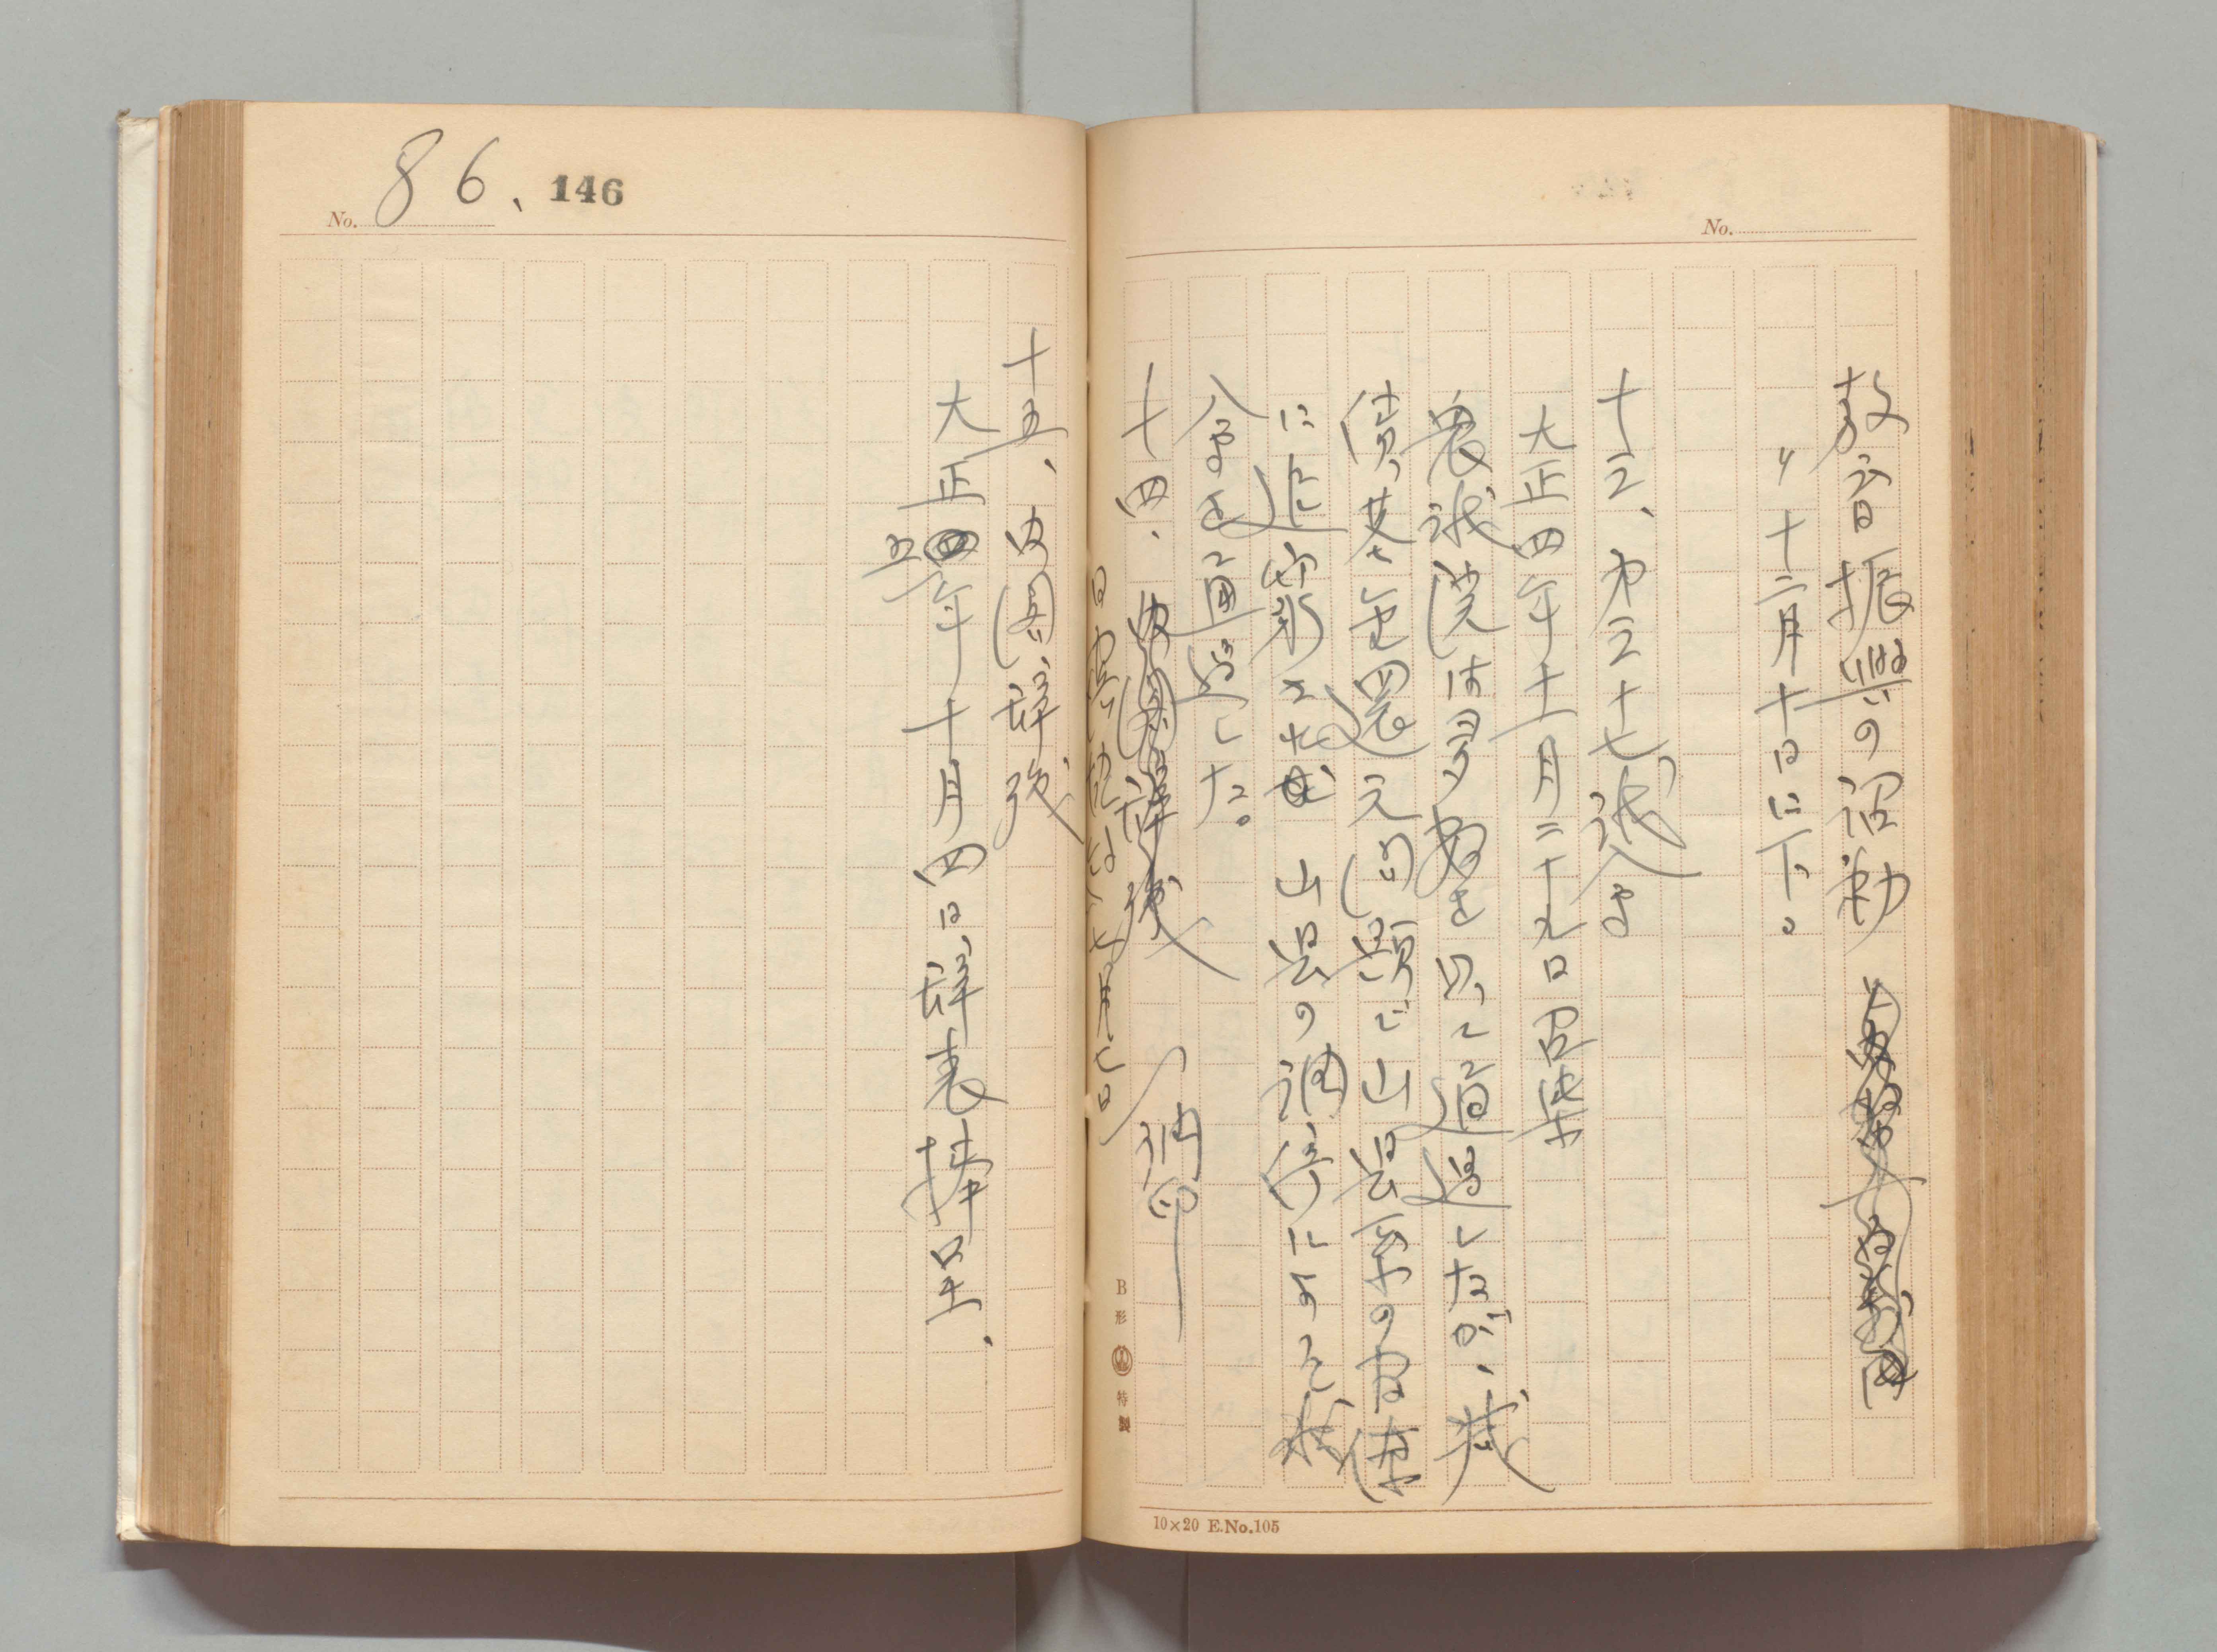 No.
教育振興の沼勅
〃十二月十日に下。
十三、第三十七議会
大正四年十一月二十九日召集
衆議院は多数を以て通過したが、減
債基金還元問題で山県系の貴族
に追窮されたが山県の調停によって
会を通過した。
十四、
日露協約は七月七日
調印
B形
特製
10×20 E.No.105
No. 86、 146
十五、内閣辞職
大正五年十月四日辞表捧呈、